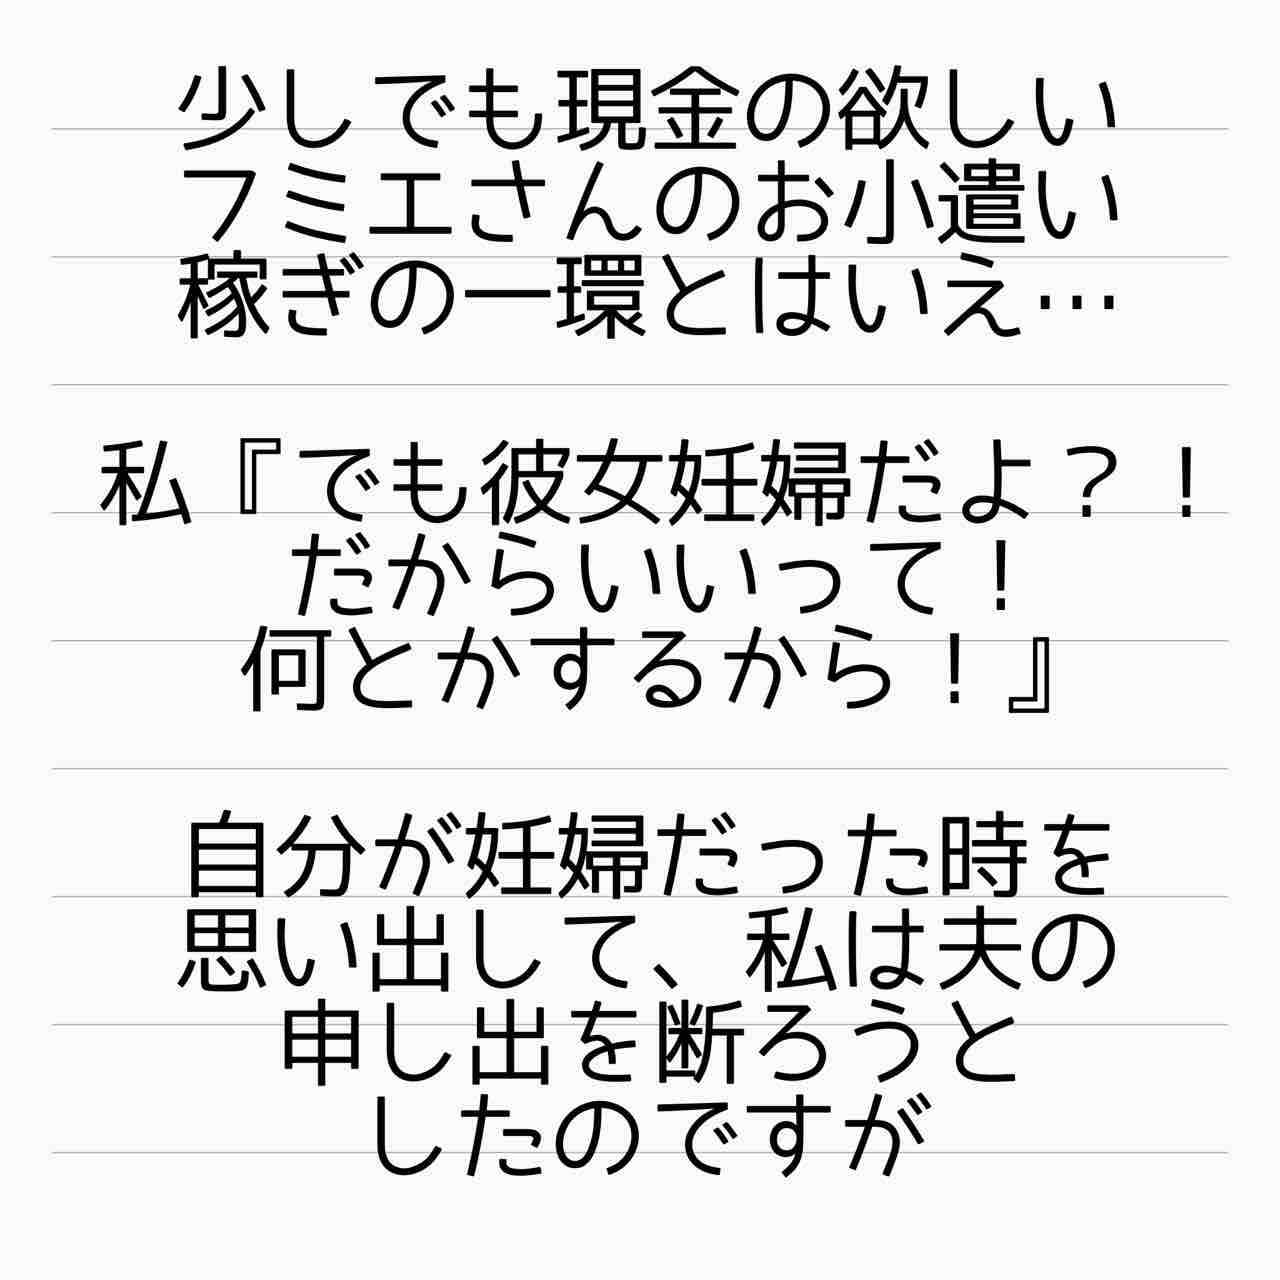 少しでも現金の欲しい
フミエさんのお小遣い
稼ぎの一環とはいえ…
私『でも彼女妊婦だよ？！
だからいいって！
何とかするから！』
自分が妊婦だった時を
思い出して、私は夫の
申し出を断ろうと
したのですが